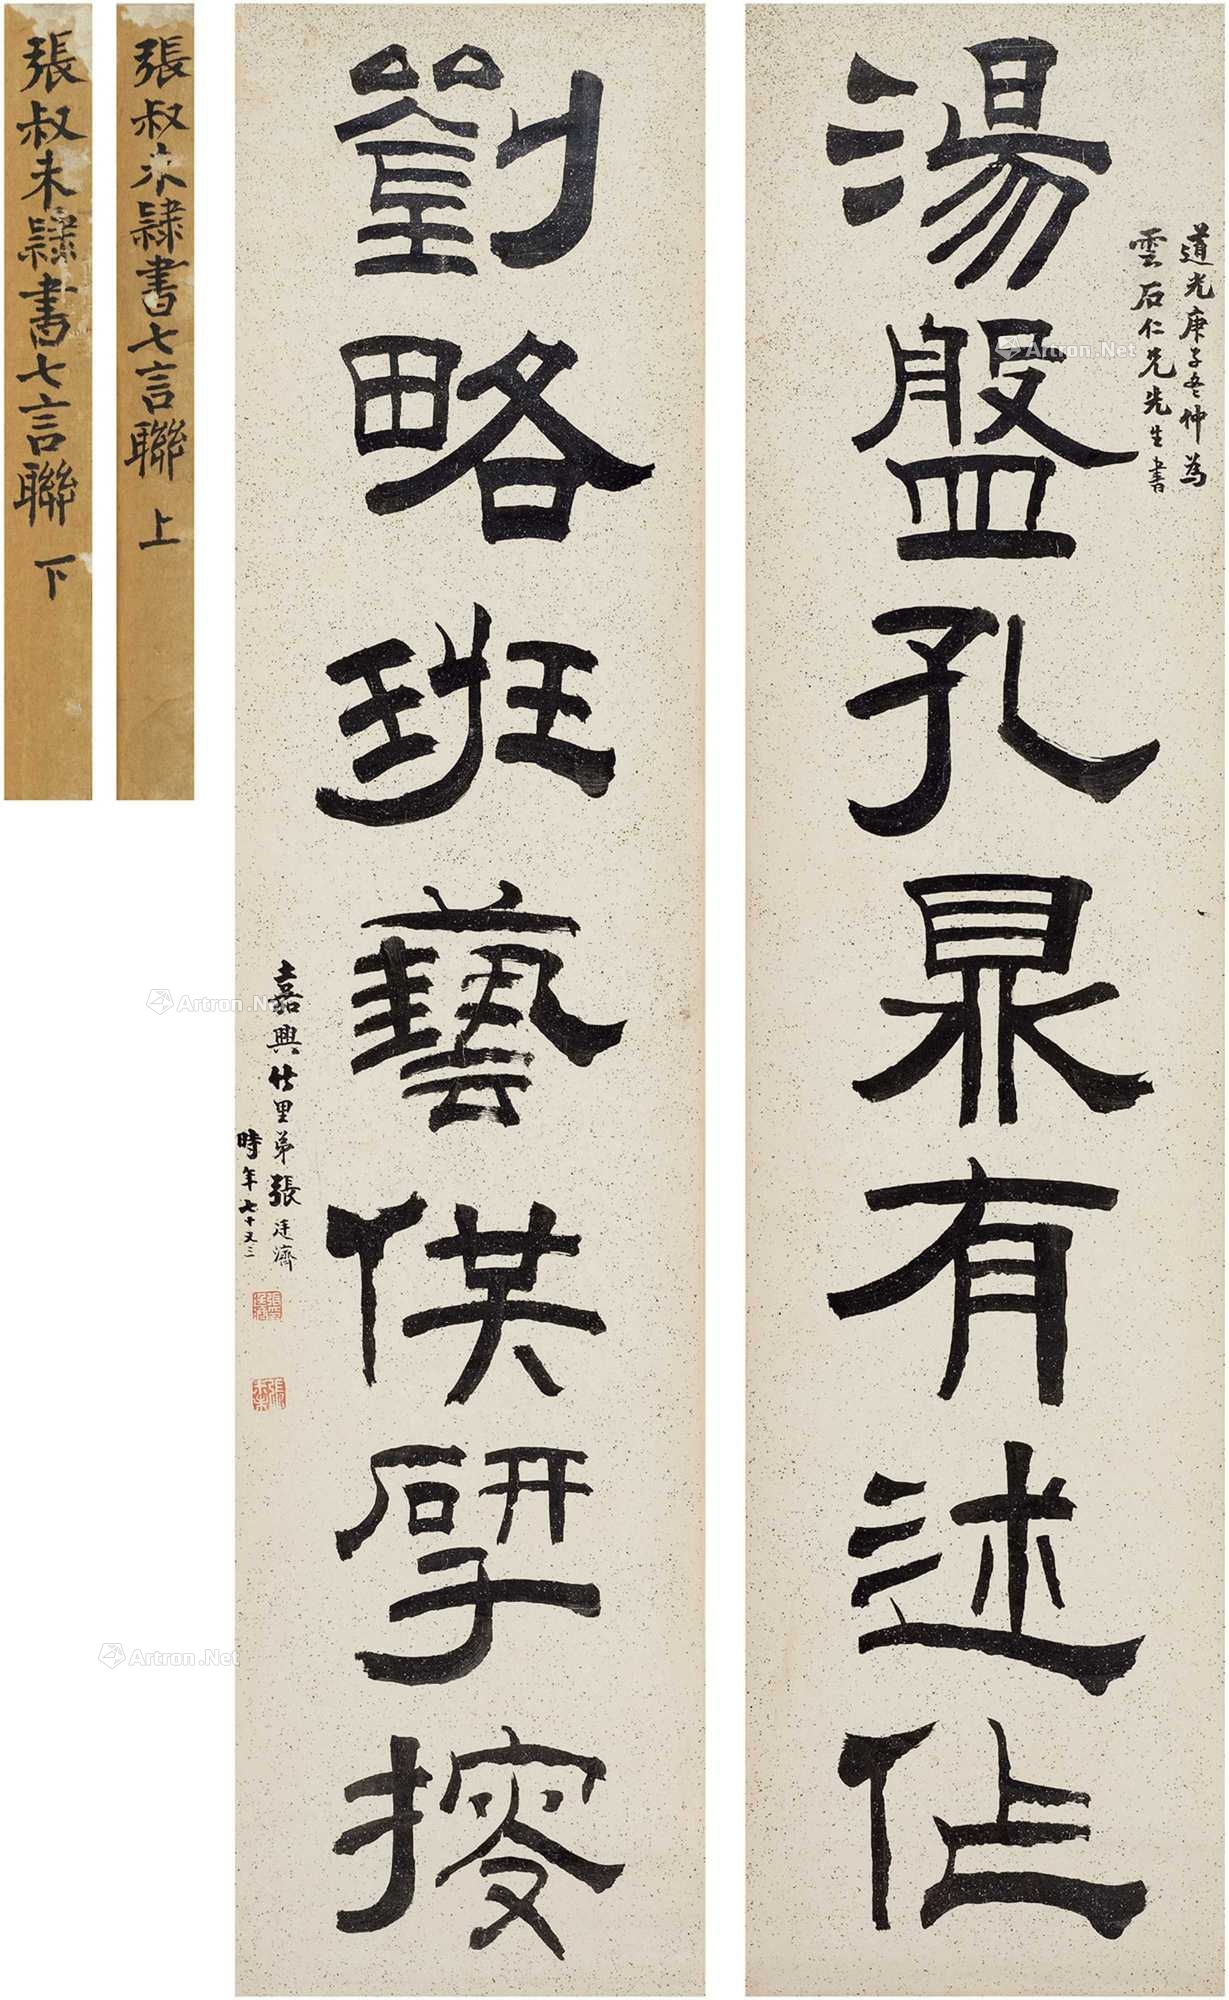 道光庚子冬仲為
雲石仁兄先生書
湯盤孔鼎有述作
劉略班藝供揅搜
嘉興竹里弟張廷濟
時年七十又三
張叔未隸書七言聯 上
張叔未隸書七言聯 下
Artron.Net
Artron.Net
Artron.Net